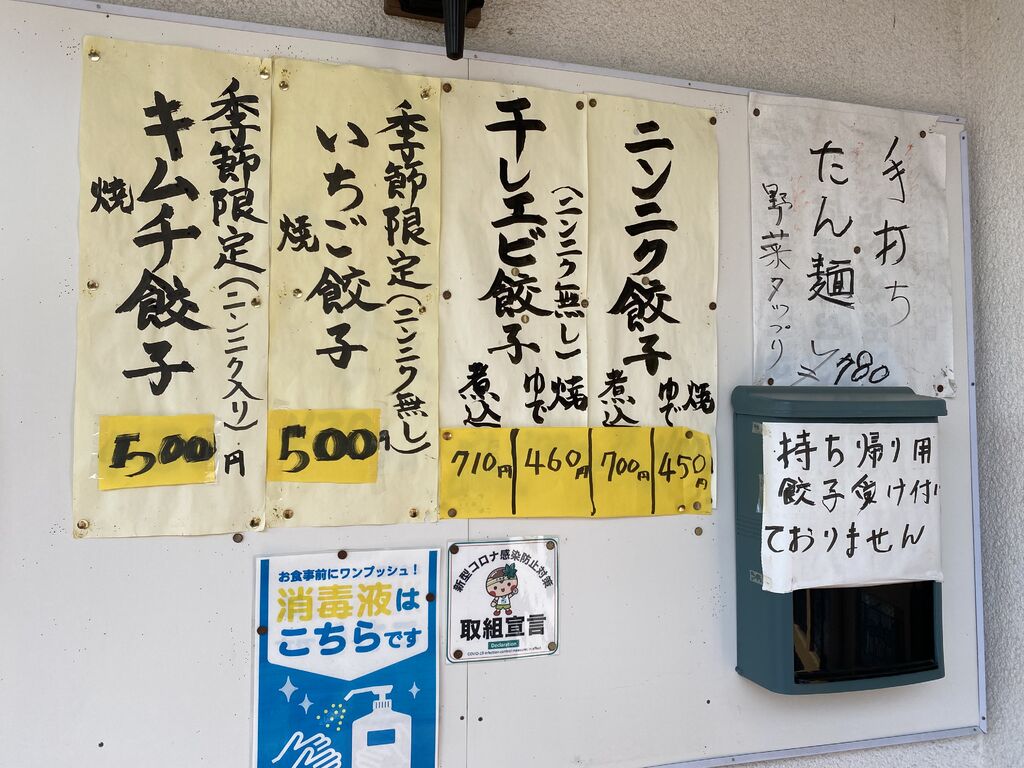 手打ち
たん麺
野菜タップリ
780
ニンニク餃子
焼
ゆで
煮込
450円
700円
干しエビ餃子
(ニンニク無し)
焼
ゆで
煮込
460円
710円
季節限定(ニンニク無し)
いちご餃子
焼
500円
季節限定(ニンニク入り)
キムチ餃子
焼
500円
持ち帰り用
餃子受け付け
ておりません
お食事前にワンプッシュ!
消毒液は
こちらです
新型コロナ感染防止対策
取組宣言
Declaration
COVID-19 infection control measures in effect